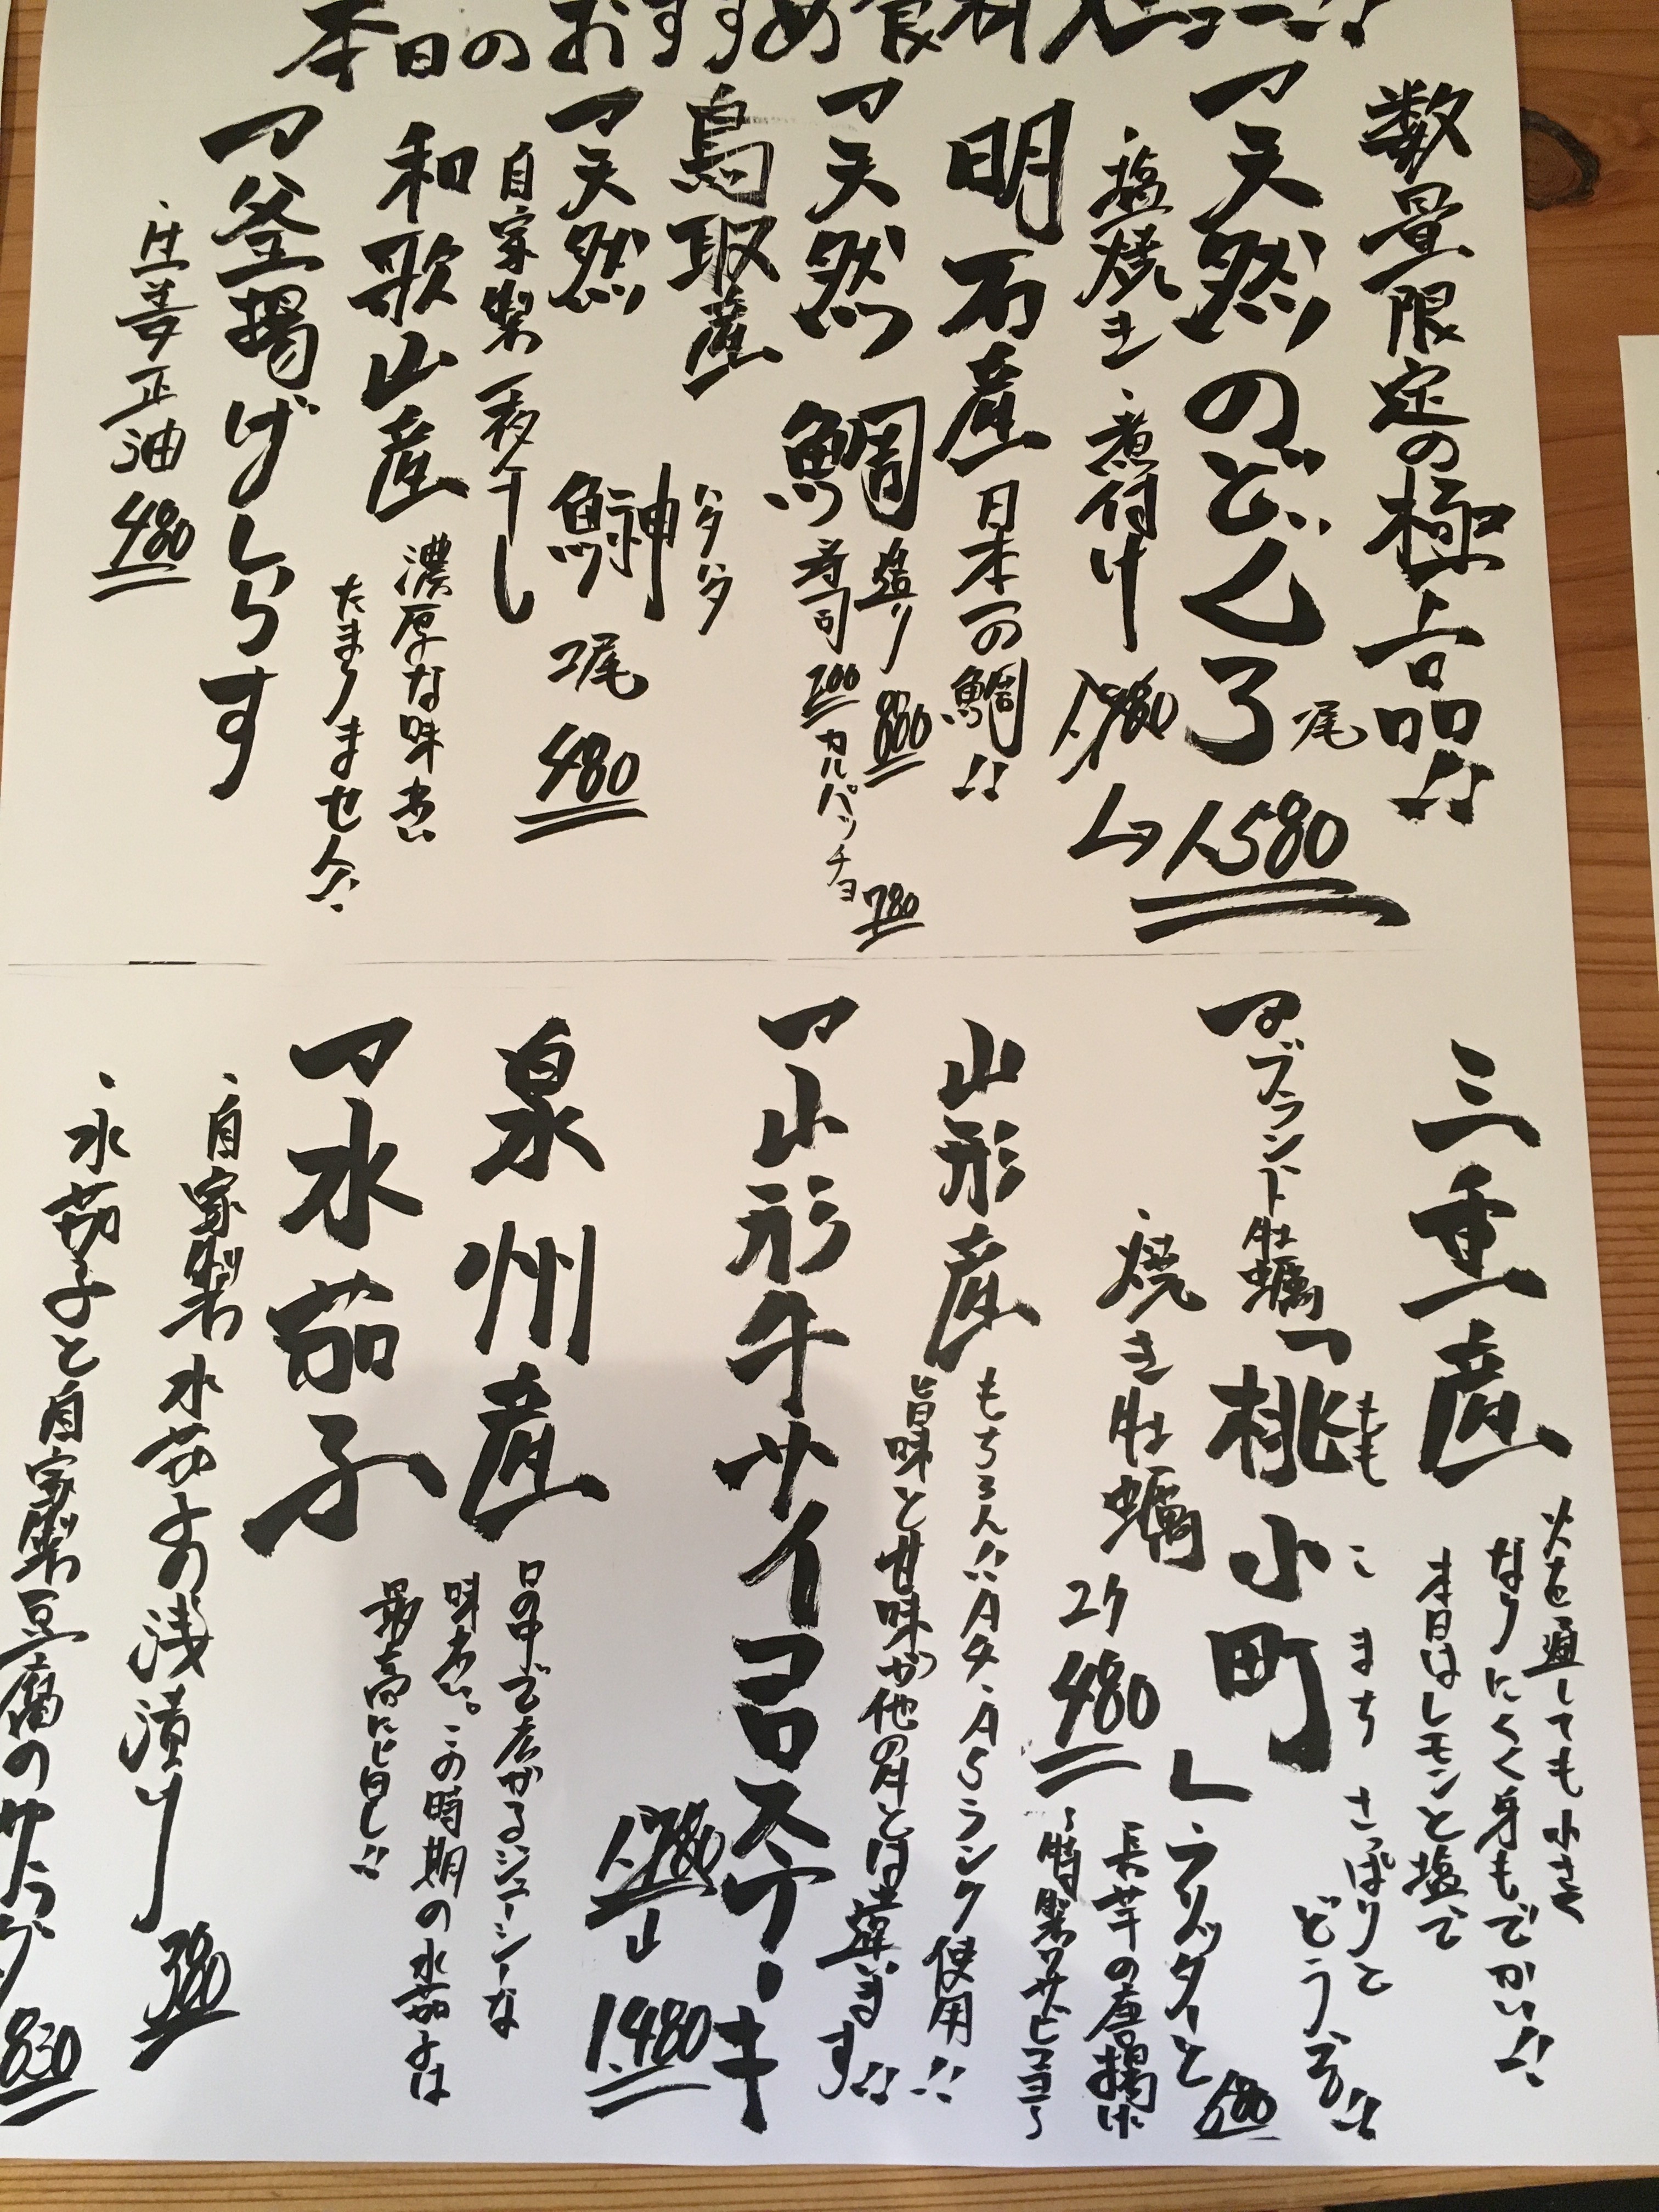 本日のおすすめ食材メニュー!!
数量限定の極上品!!
天然のどぐろ
尾
・塩焼き・煮付け
1,980
→1,580
明石産
日本一の鯛!!
天然 鯛
造り 880
寿司
カルパッチョ 780
鳥取産
ハタハタ
天然 鰰 2尾 480
自家製一夜干し
和歌山産
濃厚な味わい
たまりません!!
釜揚げしらす
480
三重産
火を通しても小さく
なりにくく身もでかい!!
本日はレモンと塩で
さっぱりと
どうぞ!!
ブランド牡蠣「桃小町」
もも こまち
・焼き牡蠣 2ケ 480
フリッターと
長芋の唐揚げ
〜特製ワサビマヨ〜
山形産
もちろん!!A4・A5ランク使用!!
旨味と甘味が他の肉とは違います!!
山形牛サイコロステーキ
1,780
→1,480
泉州産
口の中で広がるジューシーな
味わい。この時期の水茄子は
最高に旨し!!
水茄子
・自家製 水茄子の浅漬け
・水茄子と自家製豆腐のサラダ 830